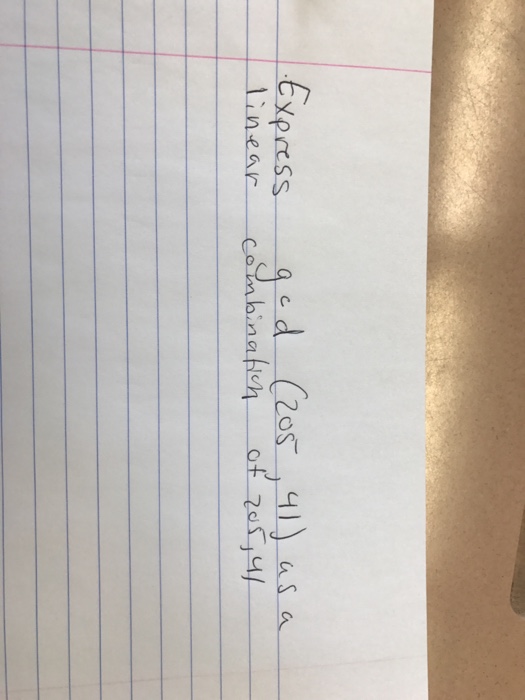 Express gcd (205, 41) as a
linear combination of 205, 41